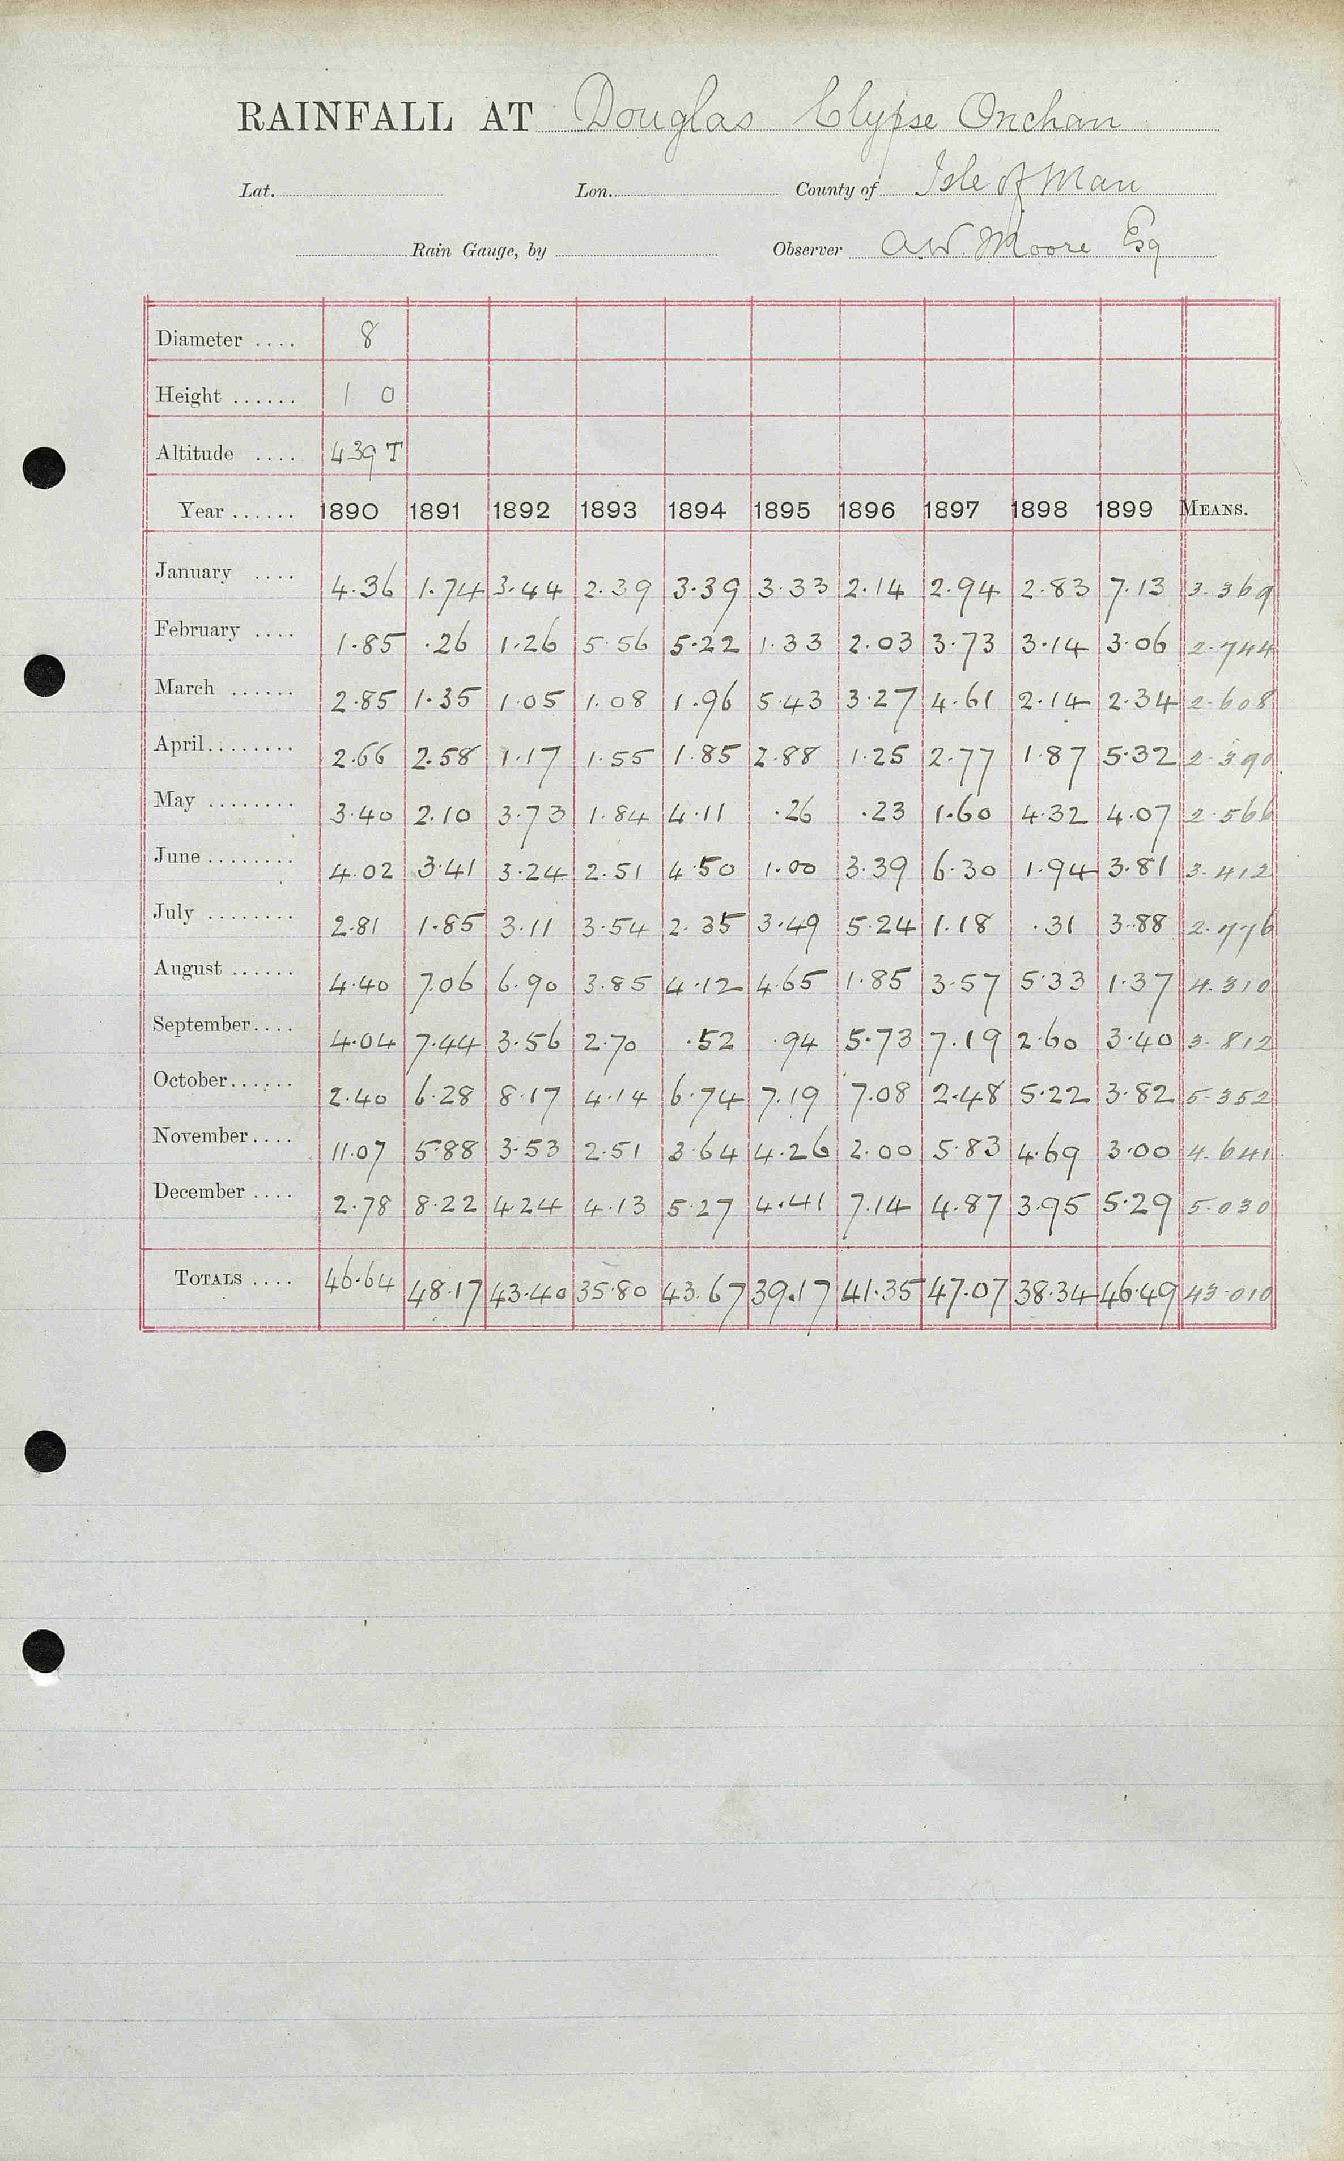 RAINFALL AT Douglas Clypse Onchan
Lat. Lon. County of Isle of Man
Rain Gauge, by Observer A.W. Moore Esq
Diameter .... 8
Height ...... 1 0
Altitude .... 439 T
Year ...... 1890 1891 1892 1893 1894 1895 1896 1897 1898 1899 MEANS.
January .... 4.36 1.74 3.44 2.39 3.39 3.33 2.14 2.94 2.83 7.13 3.369
February .... 1.85 .26 1.26 5.56 5.22 1.33 2.03 3.73 3.14 3.06 2.744
March ...... 2.85 1.35 1.05 1.08 1.96 5.43 3.27 4.61 2.14 2.34 2.608
April........ 2.66 2.58 1.17 1.55 1.85 2.88 1.25 2.77 1.87 5.32 2.390
May ........ 3.40 2.10 3.73 1.84 4.11 .26 .23 1.60 4.32 4.07 2.566
June........ 4.02 3.41 3.24 2.51 4.50 1.00 3.39 6.30 1.94 3.81 3.412
July ........ 2.81 1.85 3.11 3.54 2.35 3.49 5.24 1.18 .31 3.88 2.776
August ...... 4.40 7.06 6.90 3.85 4.12 4.65 1.85 3.57 5.33 1.37 4.310
September.... 4.04 7.44 3.56 2.70 .52 .94 5.73 7.19 2.60 3.40 3.812
October...... 2.40 6.28 8.17 4.14 6.74 7.19 7.08 2.48 5.22 3.82 5.352
November.... 11.07 5.88 3.53 2.51 3.64 4.26 2.00 5.83 4.69 3.00 4.641
December .... 2.78 8.22 4.24 4.13 5.27 4.41 7.14 4.87 3.95 5.29 5.030
TOTALS .... 46.64 48.17 43.40 35.80 43.67 39.17 41.35 47.07 38.34 46.49 43.010